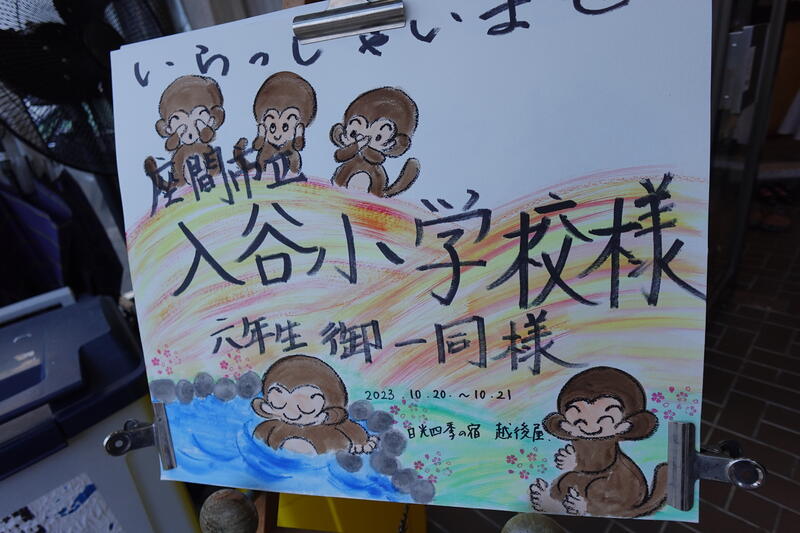 いらっしゃいませ
座間市立
入谷小学校様
六年生 御一同様
2023 10.20.~10.21
日光四季の宿 越後屋